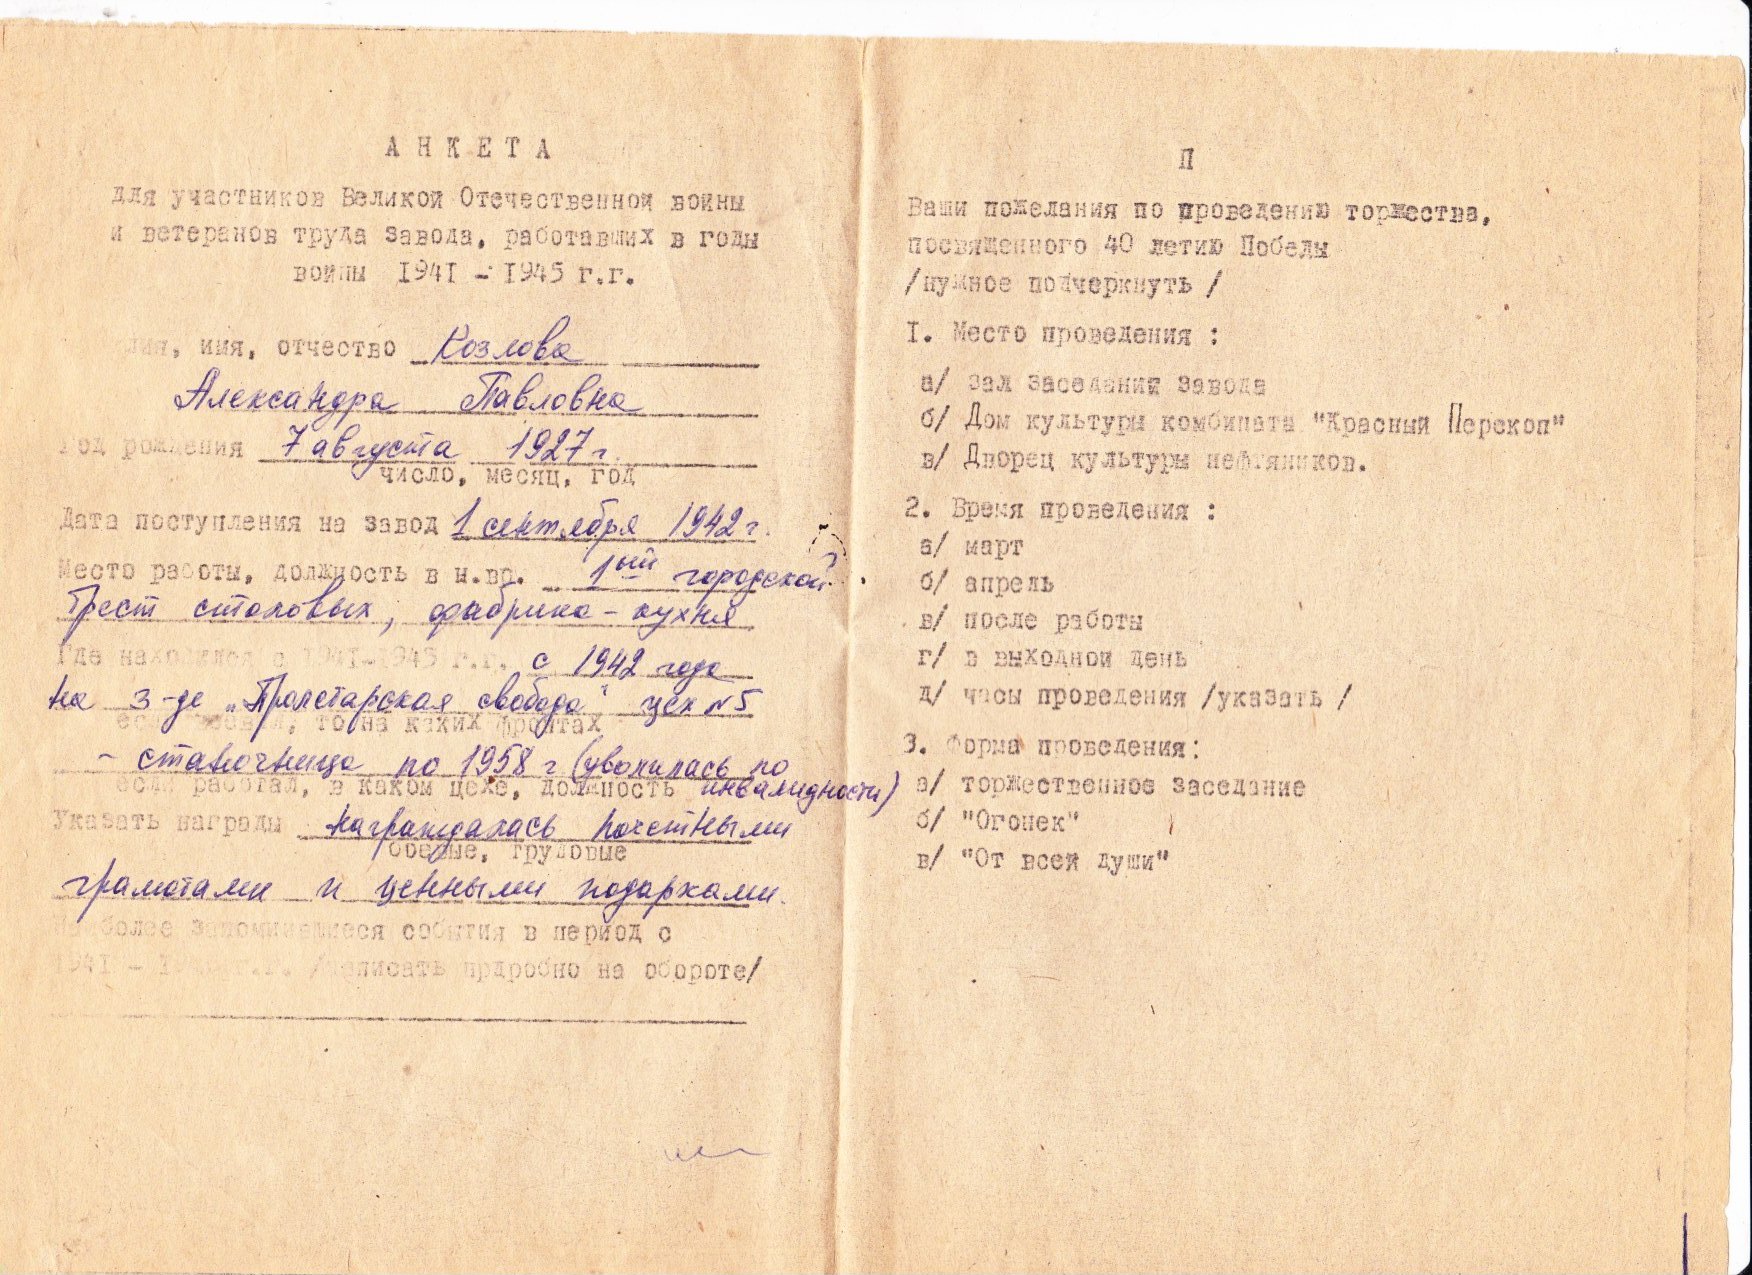 АНКЕТА
для участников Великой Отечественной войны
и ветеранов труда завода, работавших в годы
войны 1941 - 1945 г.г.
имя, отчество Козлова
Александра Павловна
Год рождения 7 августа 1927 г.
число, месяц, год
Дата поступления на завод 1 сентября 1942 г.
Место работы, должность в н.вр. 1ый городской
трест столовых, фабрика-кухня
Где находился с 1941-1945 г.г. с 1942 года
на з-де „Пролетарская свобода" цех №5
то на каких фронтах
- станочница по 1958 г (уволилась по
инвалидности)
если работал, в каком цехе, должность
Указать награды награждалась почетными
боевые, трудовые
грамотами и ценными подарками.
Наиболее запомнившиеся события в период с
1941 - г.г. /написать пдробно на обороте/
П
Ваши пожелания по проведению торжества,
посвященного 40 летию Победы
/нужное подчеркнуть /
I. Место проведения :
а/ зал заседаний завода
б/ Дом культуры комбината "Красный Перекоп"
в/ Дворец культуры нефтяников.
2. Время проведения :
а/ март
б/ апрель
в/ после работы
г/ в выходной день
д/ часы проведения /указать /
3. Форма проведения:
а/ торжественное заседание
б/ "Огонек"
в/ "От всей души"